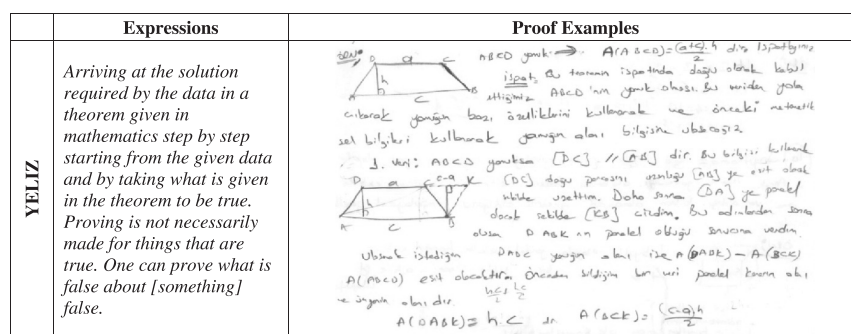 Expressions
Proof Examples
YELIZ
Arriving at the solution
required by the data in a
theorem given in
mathematics step by step
starting from the given data
and by taking what is given
in the theorem to be true.
Proving is not necessarily
made for things that are
true. One can prove what is
false about [something]
false.
D a C
h
A c B
ABCD yamuk ⟹ A(ABCD) = (a+c).h / 2 dir
ispat: Bu teoremin ispatında doğru olarak kabul
ettiğimiz ABCD'nin yamuk olması. Bu veriden yola
çıkarak yamuğun bazı özelliklerini kullanarak ve önceki matematik
sel bilgileri kullanarak yamuğun alanı bilgisine ulaşacağız
1. veri: ABCD yamuksa [DC] // [AB] dir. Bu bilgiyi kullanarak
D a C c-a K
[DC] doğru parçasını uzunluğu [AB] ye eşit olacak
h
şekilde uzattım. Daha sonra [DA] ye paralel
A c B
olacak şekilde [KB] çizdim. Bu adımlardan sonra
DABK nın paralel olduğu sonucuna vardım.
Ulaşmak istediğim DABC yamuğun alanı ise A(DABK) - A(BCK)
A(ABCD) eşit olacaktır. Önceden bildiğim bir veri paralel kenarın alanı
ve üçgenin alanı dır.
A(DABK) = h.c A(BCK) = (c-a).h / 2